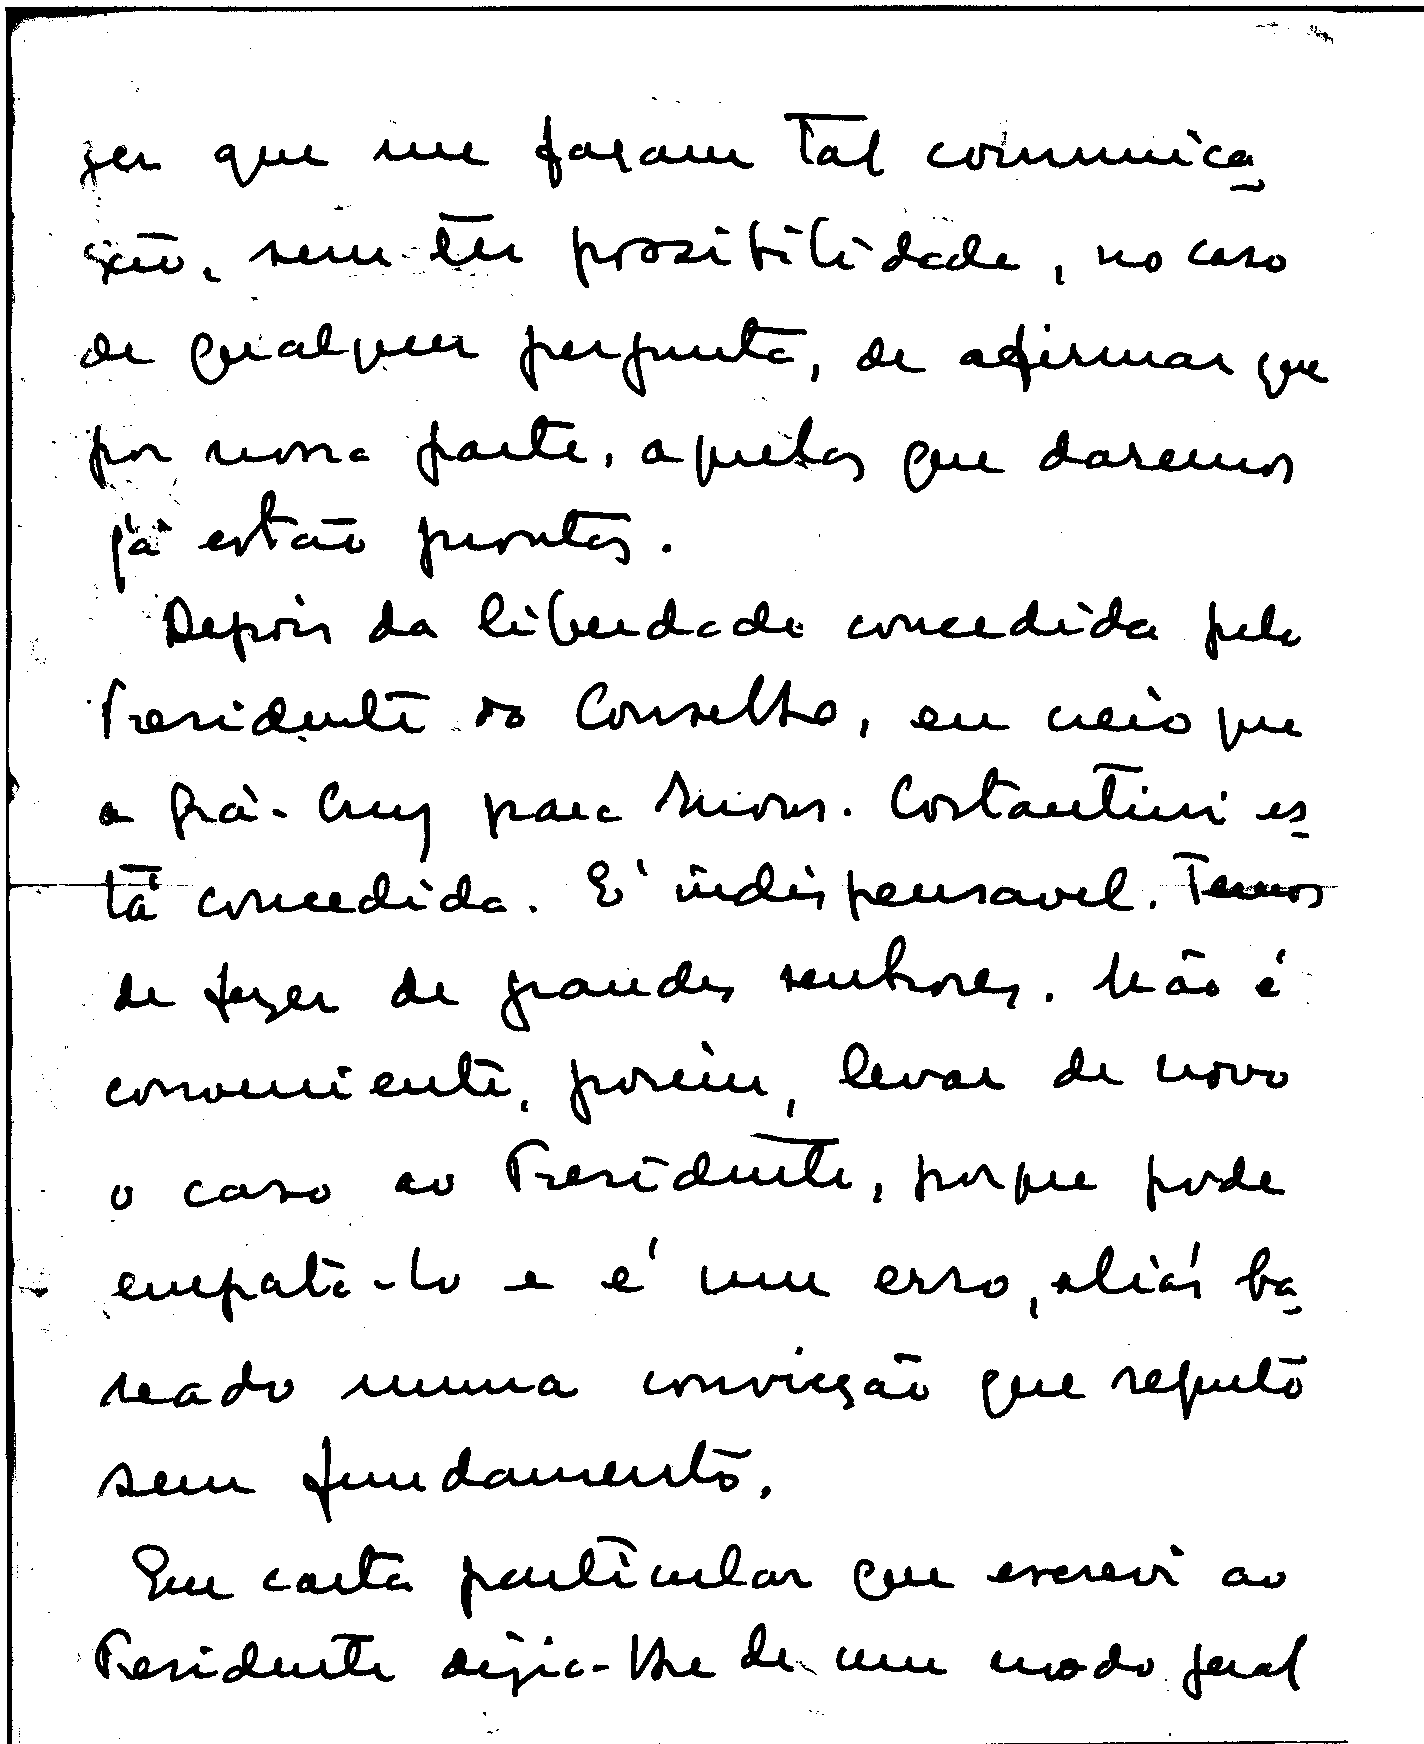 zer que me façam tal comunica
ção, sem ter possibilidade, no caso
de qualquer pergunta, de afirmar que
por nossa parte, aquelas que daremos
já estão prontas.
Depois da liberdade concedida pelo
Presidente do Conselho, eu creio que
a Grã-Cruz para Mons. Costantini es
tá concedida. É indispensavel. Temos
de fazer de grandes senhores. Não é
conveniente, porém, levar de novo
o caso ao Presidente, porque pode
empatá-lo e é um erro, aliás ba
seado numa convicção que reputo
sem fundamento.
Em carta particular que escrevi ao
Presidente dizia-lhe de um modo geral